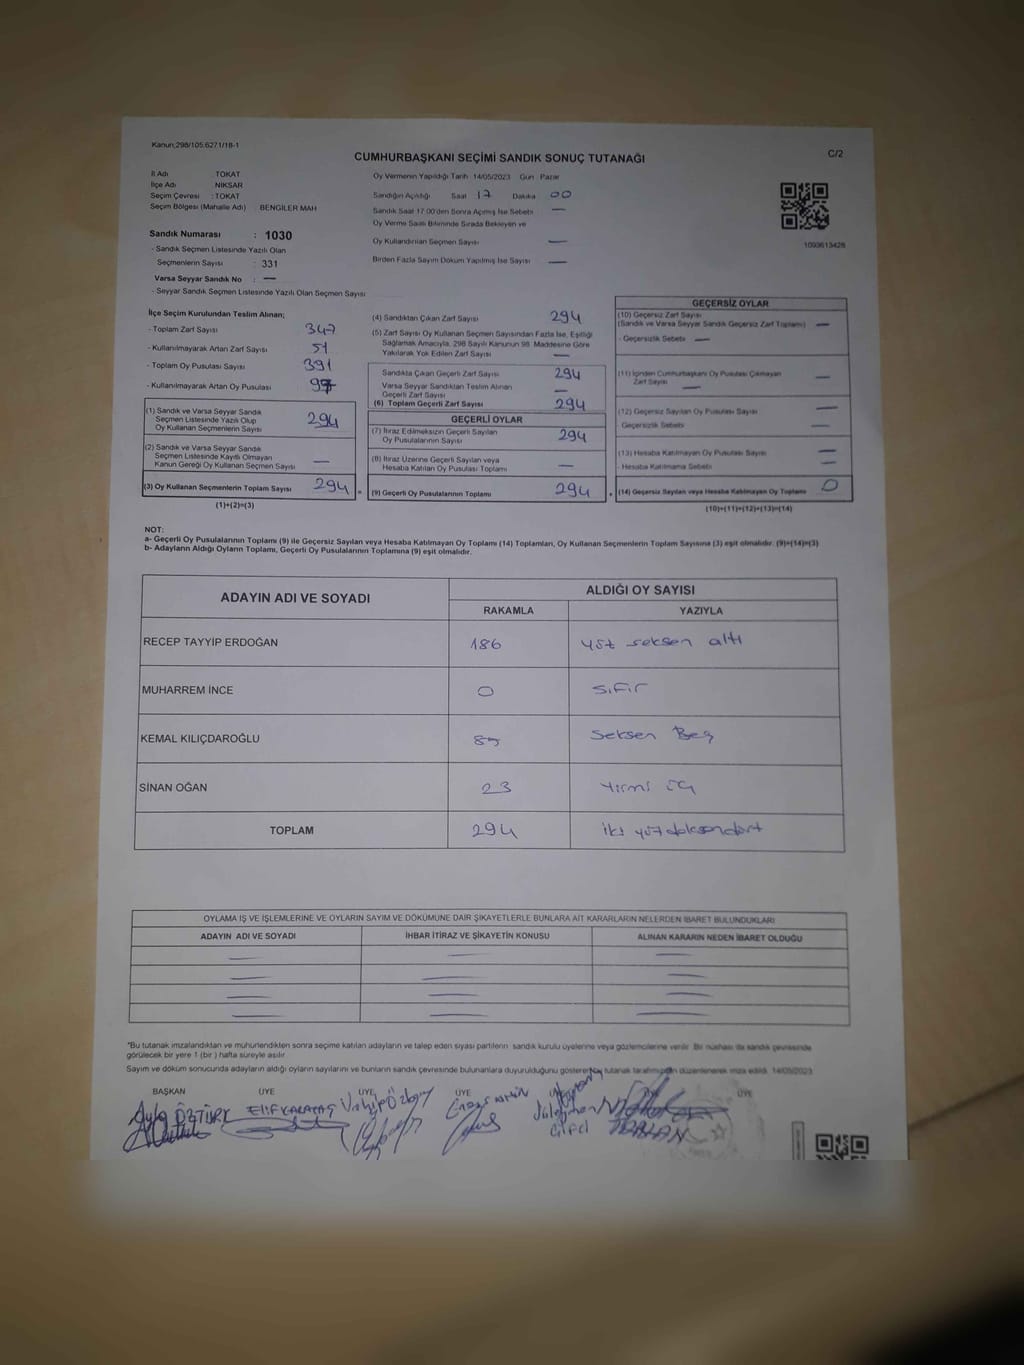 Kanun;298/105.6271/18-1
CUMHURBAŞKANI SEÇİMİ SANDIK SONUÇ TUTANAĞI
C/2
İl Adı : TOKAT
İlçe Adı : NİKSAR
Seçim Çevresi : TOKAT
Seçim Bölgesi (Mahalle Adı) : BENGİLER MAH
Sandık Numarası : 1030
- Sandık Seçmen Listesinde Yazılı Olan
Seçmenlerin Sayısı : 331
Varsa Seyyar Sandık No : —
- Seyyar Sandık Seçmen Listesinde Yazılı Olan Seçmen Sayısı
Oy Vermenin Yapıldığı Tarih 14/05/2023 Gün Pazar
Sandığın Açıldığı Saat 17 Dakika 00
Sandık Saat 17:00'den Sonra Açılmış İse Sebebi —
Oy Verme Saati Bitiminde Sırada Bekleyen ve
Oy Kullandırılan Seçmen Sayısı —
Birden Fazla Sayım Döküm Yapılmış İse Sayısı —
1093613428
İlçe Seçim Kurulundan Teslim Alınan;
- Toplam Zarf Sayısı 347
- Kullanılmayarak Artan Zarf Sayısı 51
- Toplam Oy Pusulası Sayısı 391
- Kullanılmayarak Artan Oy Pusulası
(1) Sandık ve Varsa Seyyar Sandık
Seçmen Listesinde Yazılı Olup
Oy Kullanan Seçmenlerin Sayısı 294
(2) Sandık ve Varsa Seyyar Sandık
Seçmen Listesinde Kayıtlı Olmayan
Kanun Gereği Oy Kullanan Seçmen Sayısı —
(3) Oy Kullanan Seçmenlerin Toplam Sayısı 294
(1)+(2)=(3)
(4) Sandıktan Çıkan Zarf Sayısı 294
(5) Zarf Sayısı Oy Kullanan Seçmen Sayısından Fazla İse, Eşitliği
Sağlamak Amacıyla, 298 Sayılı Kanunun 98. Maddesine Göre
Yakılarak Yok Edilen Zarf Sayısı —
Sandıkta Çıkan Geçerli Zarf Sayısı 294
Varsa Seyyar Sandıktan Teslim Alınan
Geçerli Zarf Sayısı —
(6) Toplam Geçerli Zarf Sayısı 294
GEÇERLİ OYLAR
(7) İtiraz Edilmeksizin Geçerli Sayılan
Oy Pusulalarının Sayısı 294
(8) İtiraz Üzerine Geçerli Sayılan veya
Hesaba Katılan Oy Pusulası Toplamı —
(9) Geçerli Oy Pusulalarının Toplamı 294
GEÇERSİZ OYLAR
(10) Geçersiz Zarf Sayısı
(Sandık ve Varsa Seyyar Sandık Geçersiz Zarf Toplamı) —
- Geçersizlik Sebebi —
(11) İçinden Cumhurbaşkanı Oy Pusulası Çıkmayan
Zarf Sayısı —
(12) Geçersiz Sayılan Oy Pusulası Sayısı —
Geçersizlik Sebebi —
(13) Hesaba Katılmayan Oy Pusulası Sayısı —
- Hesaba Katılmama Sebebi —
(14) Geçersiz Sayılan veya Hesaba Katılmayan Oy Toplamı 0
(10)+(11)+(12)+(13)=(14)
NOT:
a- Geçerli Oy Pusulalarının Toplamı (9) ile Geçersiz Sayılan veya Hesaba Katılmayan Oy Toplamı (14) Toplamları, Oy Kullanan Seçmenlerin Toplam Sayısına (3) eşit olmalıdır. (9)+(14)=(3)
b- Adayların Aldığı Oyların Toplamı, Geçerli Oy Pusulalarının Toplamına (9) eşit olmalıdır.
ADAYIN ADI VE SOYADI
ALDIĞI OY SAYISI
RAKAMLA YAZIYLA
RECEP TAYYİP ERDOĞAN 186 yüz seksen altı
MUHARREM İNCE 0 sıfır
KEMAL KILIÇDAROĞLU 85 Seksen Beş
SİNAN OĞAN 23 Yirmi üç
TOPLAM 294 iki yüz doksandört
OYLAMA İŞ VE İŞLEMLERİNE VE OYLARIN SAYIM VE DÖKÜMÜNE DAİR ŞİKAYETLERLE BUNLARA AİT KARARLARIN NELERDEN İBARET BULUNDUKLARI
ADAYIN ADI VE SOYADI İHBAR İTİRAZ VE ŞİKAYETİN KONUSU ALINAN KARARIN NEDEN İBARET OLDUĞU
"Bu tutanak imzalandıktan ve mühürlendikten sonra seçime katılan adayların ve talep eden siyasi partilerin sandık kurulu üyelerine veya gözlemcilerine verilir. Bir nüshası da sandık çevresinde
görülecek bir yere 1 (bir) hafta süreyle asılır.
Sayım ve döküm sonucunda adayların aldığı oyların sayılarını ve bunların sandık çevresinde bulunanlara duyurulduğunu gösteren tutanak tarafımızdan düzenlenerek imza edildi. 14/05/2023
BAŞKAN ÜYE ÜYE ÜYE ÜYE
Ayla ÖZTÜRK ELİF KARATAŞ